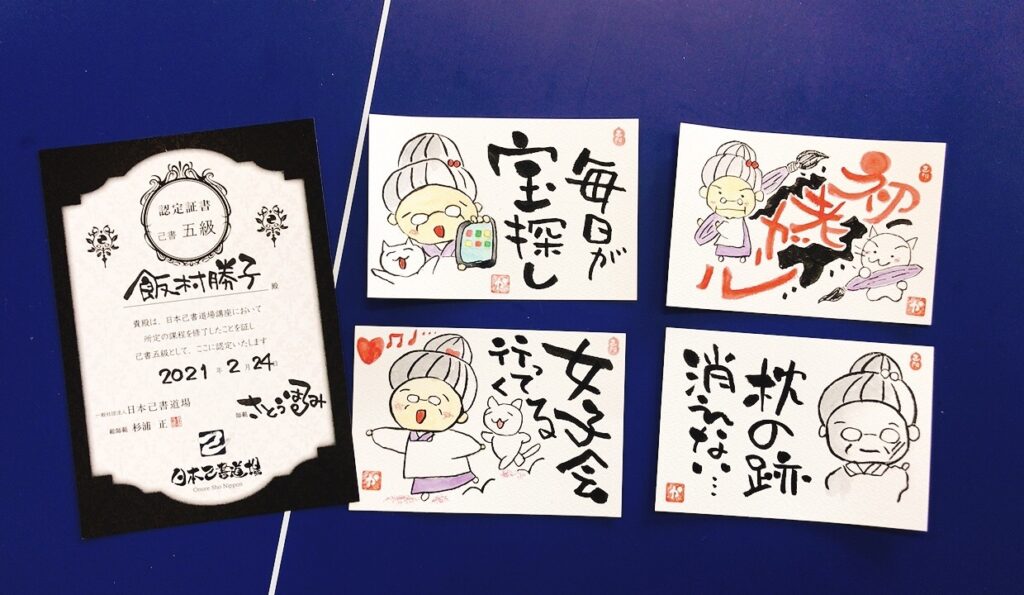 認定証書
己書 五級
飯村勝子 殿
貴殿は、日本己書道場講座において
所定の課程を修了したことを証し
己書五級として、ここに認定いたします
2021年2月24日
一般社団法人日本己書道場
総師範 杉浦 正
師範 さとうはるみ
日本己書道場
Onore Sho Nippon
毎日が
宝探し
初
老
ガール
女子会
行ってくる
枕の跡
消えない…